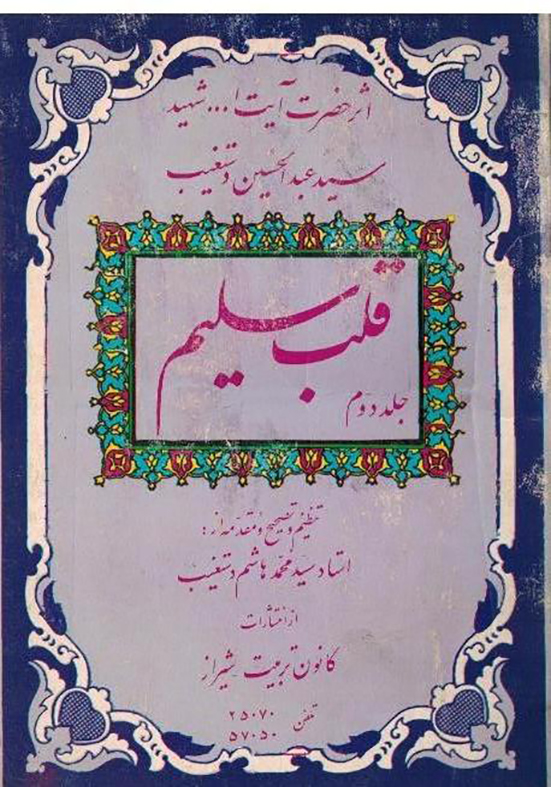 اثر حضرت آیت ا... شهید
سید عبدالحسین دستغیب
قلب سلیم
جلد دوم
تنظیم و تصحیح و مقدمه از :
استاد سید محمد هاشم دستغیب
از انتشارات
کانون تربیت شیراز
تلفن ۲۵۰۷۰
۵۷۰۵۰